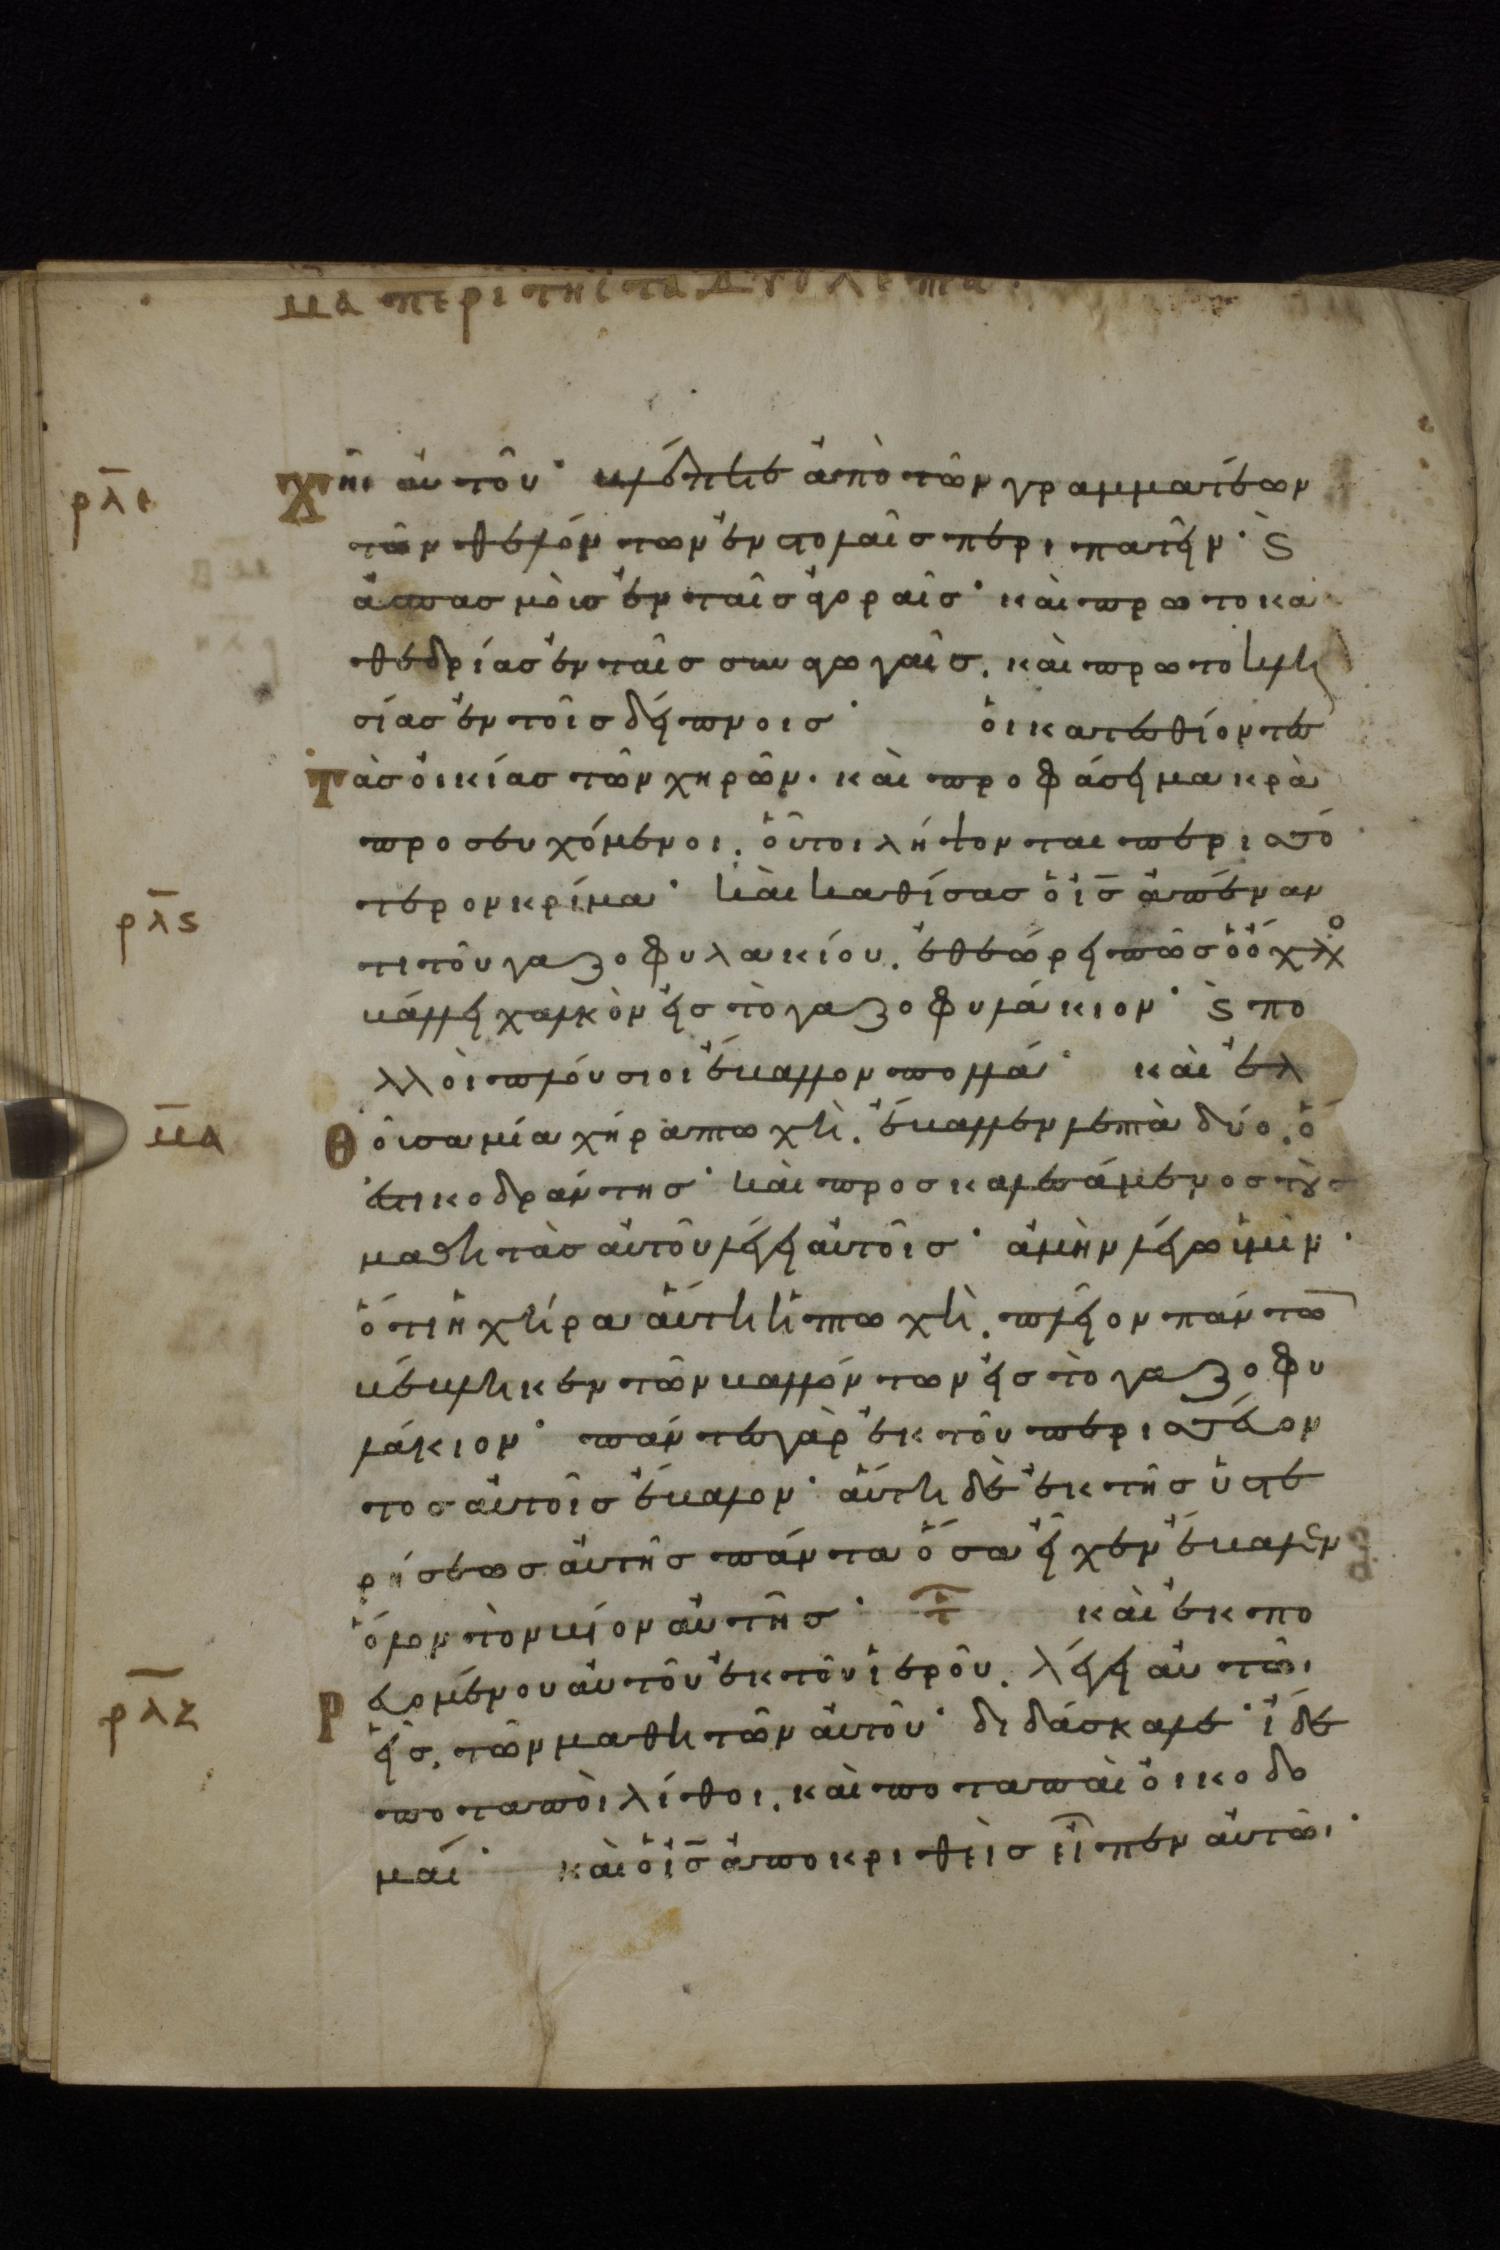 μα περι της τα δυο λεπτα
ρλε
χῆι αὐτοῦ· βλέπετε ἀπὸ τῶν γραμματέων
τῶν θελόντων ἐν στολαῖς περιπατεῖν· ϛ
ἀσπασμοὺς ἐν ταῖς ἀγοραῖς· καὶ πρωτοκα
θεδρίας ἐν ταῖς συναγωγαῖς. καὶ πρωτοκλη
σίας ἐν τοῖς δείπνοις· ὁι κατεσθίοντες
τὰς ὀικίας τῶν χηρῶν· καὶ προφάσει μακρὰ
προσευχόμενοι. οὗτοι λήψονται περισσό
ρλϛ
τερον κρίμα· καὶ καθίσας ὁ ἰς ἀπέναν
τι τοῦ γαζοφυλακίου. ἐθεώρει πῶς ὁ ὄχλο
βάλλει χαλκὸν εἰς τὸ γαζοφυλάκιον· ϛ πο
λλοὶ πλούσιοι ἔβαλλον πολλά· καὶ ἐλ
μα
θοῦσα μία χήρα πτωχὴ. ἔβαλλεν λεπτὰ δύο. ὅ
ἐστι κοδράντης· καὶ προσκαλεσάμενος τοὺς
μαθητὰς αὐτοῦ λέγει αὐτοῖς· ἀμὴν λέγω ὑμῖν·
ὅτι ἡ χήρα αὕτη ἡ πτωχὴ. πλεῖον πάντων
βέβληκεν τῶν βαλλόντων εἰς τὸ γαζοφυ
λάκιον· πάντες γὰρ ἐκ τοῦ περισσέυον
τος αὐτοῖς ἔβαλον· αὕτη δὲ ἐκ τῆς ὑστε
ρήσεως αὐτῆς πάντα ὅσα εἶχεν ἔβαλεν
ὅλον τὸν βίον αὐτῆς· τε καὶ ἐκπο
ρλζ
ρευομένου αὐτοῦ ἐκ τοῦ ἱεροῦ. λέγει αὐτῶι
εἷς. τῶν μαθητῶν αὐτοῦ· διδάσκαλε· ἴδε
ποταποὶ λίθοι. καὶ ποταπαὶ ὀικοδο
μαί· καὶ ὁ ἰς ἀποκριθεὶς εἶπεν αὐτῶι·